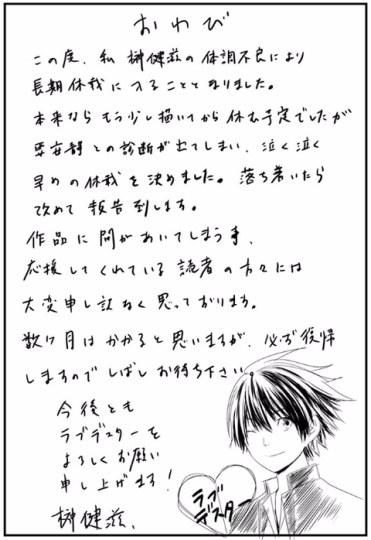 おわび
この度、私 榊健滋の体調不良により
長期休載に入ることとなりました。
本来なら もう少し描いてから休む予定でしたが
要安静との診断が出てしまい、泣く泣く
早めの休載を決めました。落ち着いたら
改めて報告致します。
作品に間があいてしまう事、
応援してくれている読者の方々には
大変申し訳なく思っております。
数ヶ月はかかると思いますが、必ず復帰
しますので しばしお待ち下さい
今後とも
ラブデスターを
よろしくお願い
申し上げます!
榊健滋、
ラブ
デスター